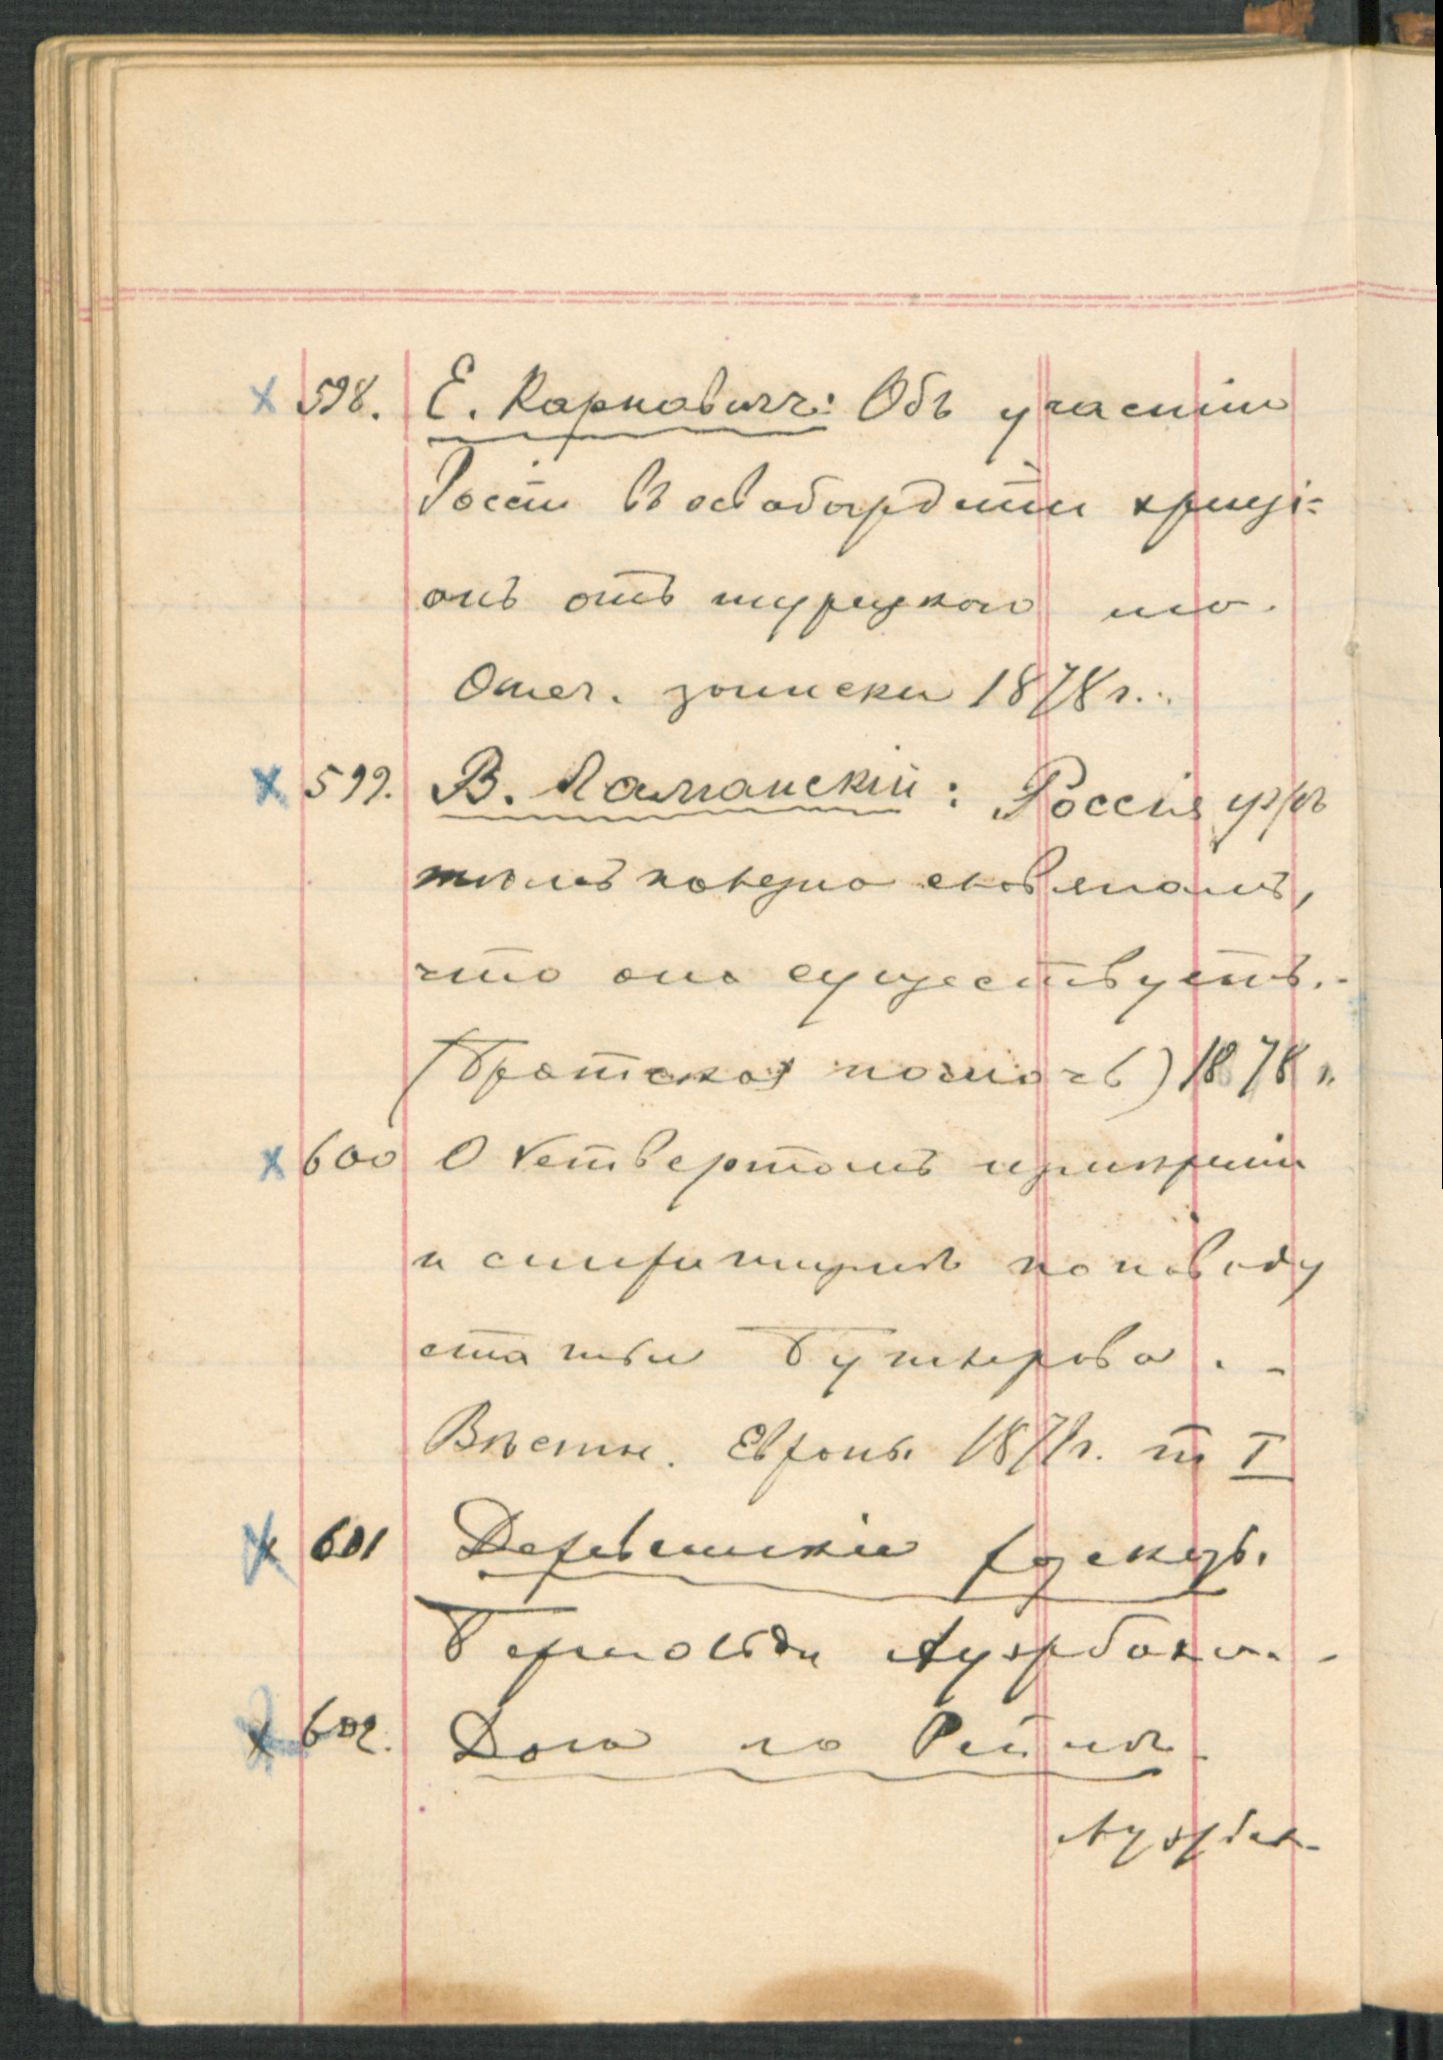 х 598. Е. Карновичъ: Объ участіи
Россіи въ освобожденіи христі=
анъ отъ турецкаго ига.
Отеч. записки 1878 г.
х 599. В. Ламанскій: Россія уже
тѣмъ полезна славянамъ,
что она существуетъ.-
(Братская помочь) 1878 г.
х 600 О четвертомъ измѣреніи
и спиритизмѣ по поводу
статьи Бутлерова. -
Вѣстн. Европы 187 г. т I
х 601 Деревенскіе разсказы.
Бертольда Ауэрбаха. -
х 602. Дача на Рейнѣ.
Ауэрбах-